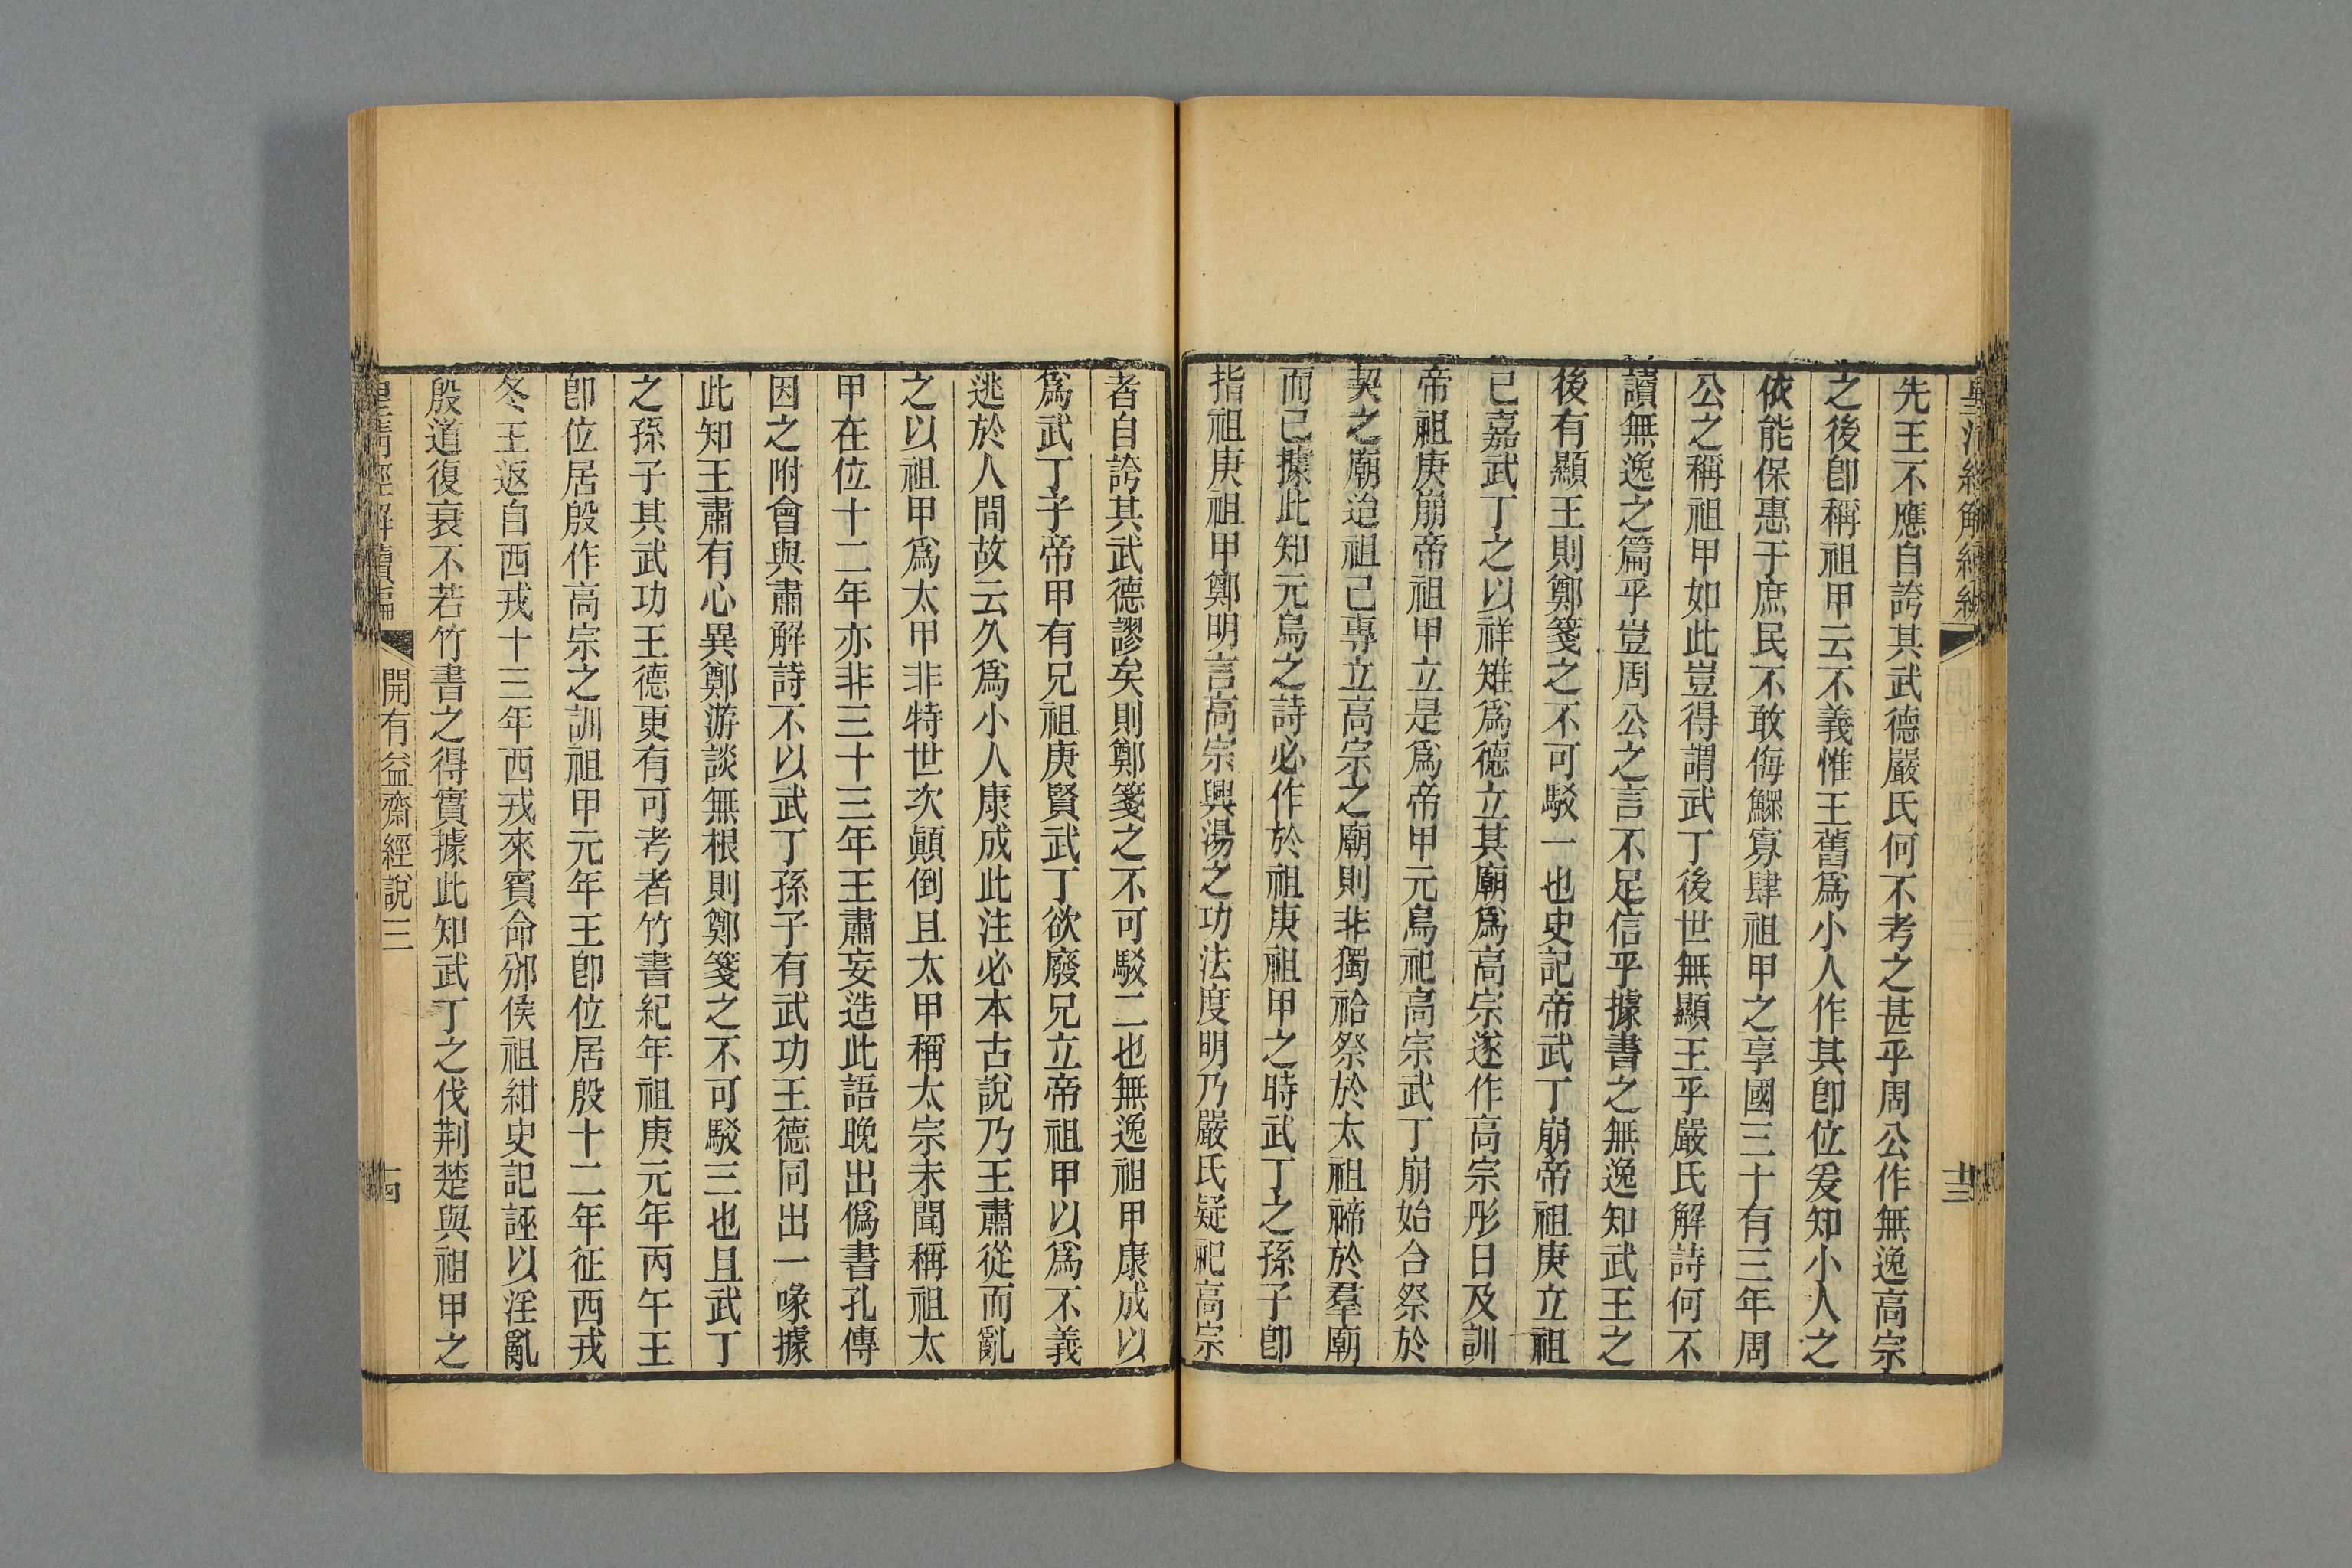 皇清經解續編
十三
先王不應自誇其武德嚴氏何不考之甚乎周公作無逸高宗
之後卽稱祖甲云不義惟王舊爲小人作其卽位爰知小人之
依能保惠于庶民不敢侮鰥寡肆祖甲之享國三十有三年周
公之稱祖甲如此豈得謂武丁後世無顯王乎嚴氏解詩何不
讀無逸之篇乎豈周公之言不足信乎據書之無逸知武王之
後有顯王則鄭箋之不可駁一也史記帝武丁崩帝祖庚立祖
己嘉武丁之以祥雉爲德立其廟爲高宗遂作高宗肜日及訓
帝祖庚崩帝祖甲立是爲帝甲元鳥祀高宗武丁崩始合祭於
契之廟迨祖己專立高宗之廟則非獨祫祭於太祖禘於羣廟
而已據此知元鳥之詩必作於祖庚祖甲之時武丁之孫子卽
指祖庚祖甲鄭明言高宗興湯之功法度明乃嚴氏疑祀高宗
者自誇其武德謬矣則鄭箋之不可駁二也無逸祖甲康成以
爲武丁子帝甲有兄祖庚賢武丁欲廢兄立帝祖甲以爲不義
逃於人間故云久爲小人康成此注必本古說乃王肅從而亂
之以祖甲爲太甲非特世次顚倒且太甲稱太宗未聞稱祖太
甲在位十二年亦非三十三年王肅妄造此語晚出僞書孔傳
因之附會與肅解詩不以武丁孫子有武功王德同出一喙據
此知王肅有心異鄭游談無根則鄭箋之不可駁三也且武丁
之孫子其武功王德更有可考者竹書紀年祖庚元年丙午王
卽位居殷作高宗之訓祖甲元年王卽位居殷十二年征西戎
冬王返自西戎十三年西戎來賓命邠侯祖紺史記誣以淫亂
殷道復衰不若竹書之得實據此知武丁之伐荆楚與祖甲之
皇淸經解續編
開有益齋經說三
十四